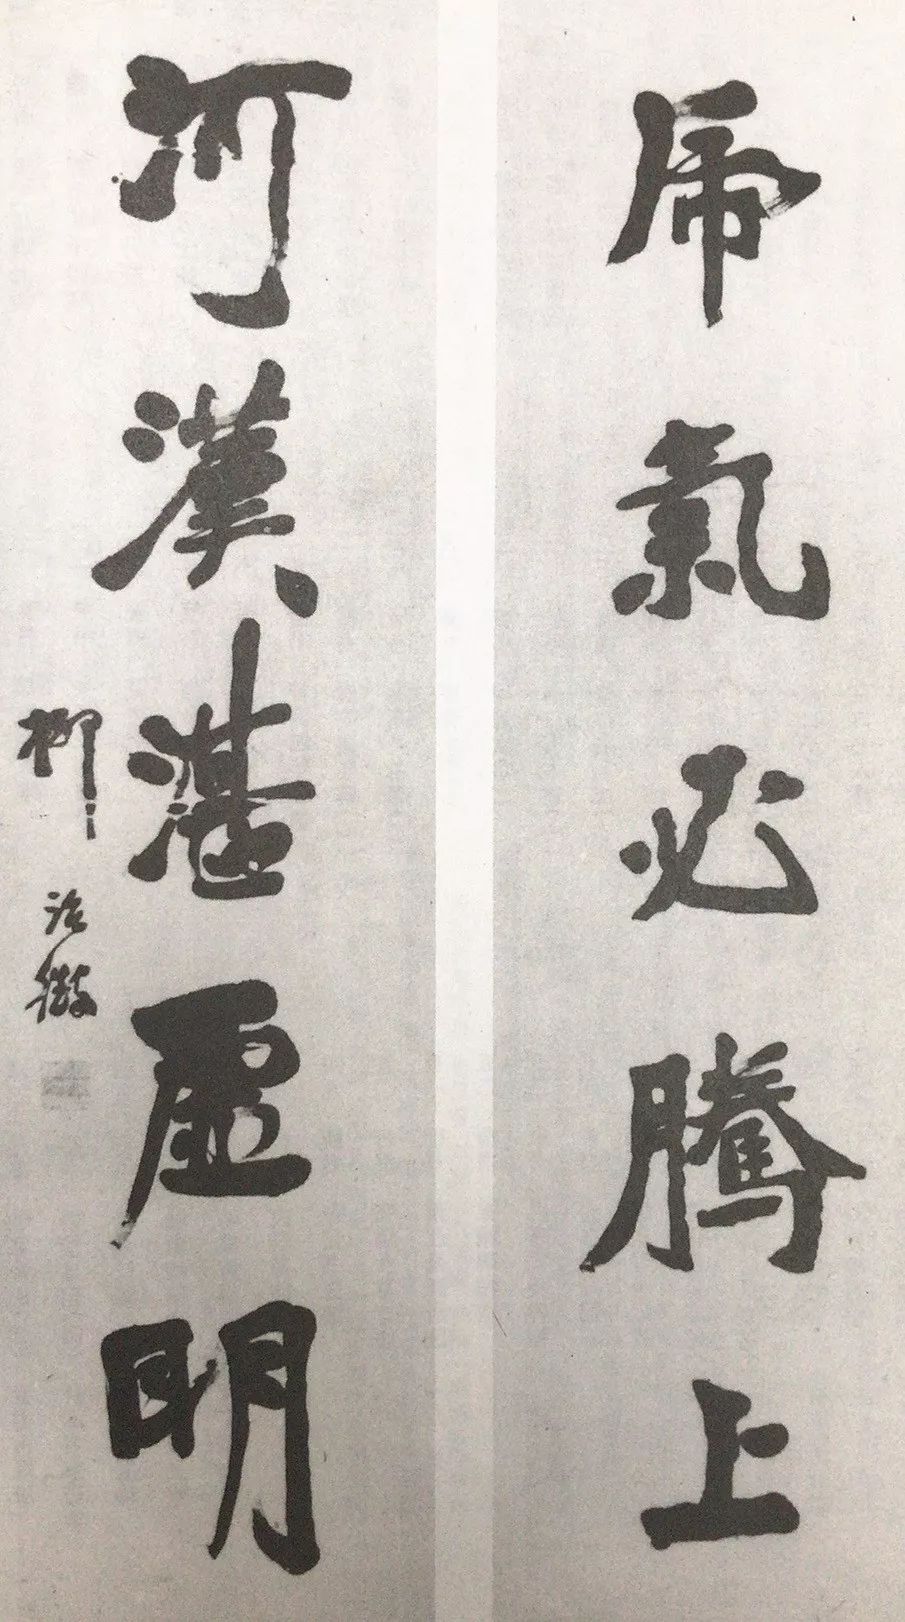 虎氣必騰上
河漢湛虛明
柳詒徵